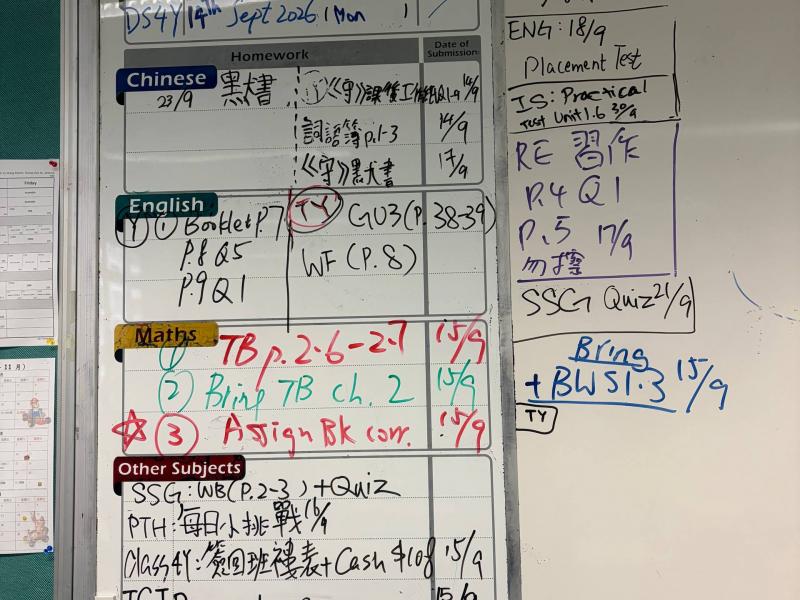 DS4Y 14th Sept 2026 (Mon )
Homework
Date of Submission
Chinese
23/9 黑書
①《守》課後工作紙Q1-9 14/9
詞語簿p.1-3 14/9
《守》黑書 17/9
English
Y ① Booklet P.7
P.8 Q5
P.9 Q1
TY GU3(P.38-39)
WF (P.8)
Maths
① TB p.2.6-2.7 15/9
② Bring TB ch. 2 15/9
☆ ③ Assign BK corr. 15/9
Other Subjects
SSG: WB(P.2-3) + Quiz
PTH: 每日小挑戰 16/9
Class4Y: 簽回班褸表 + Cash $108 15/9
15/9
ENG: 18/9
Placement Test
IS: Practical
Test Unit 1.6 30/9
RE 習作
P.4 Q1
P.5 17/9
勿擦
SSG Quiz 21/9
Bring
+ BWS1.3 15/9
TY
Friday